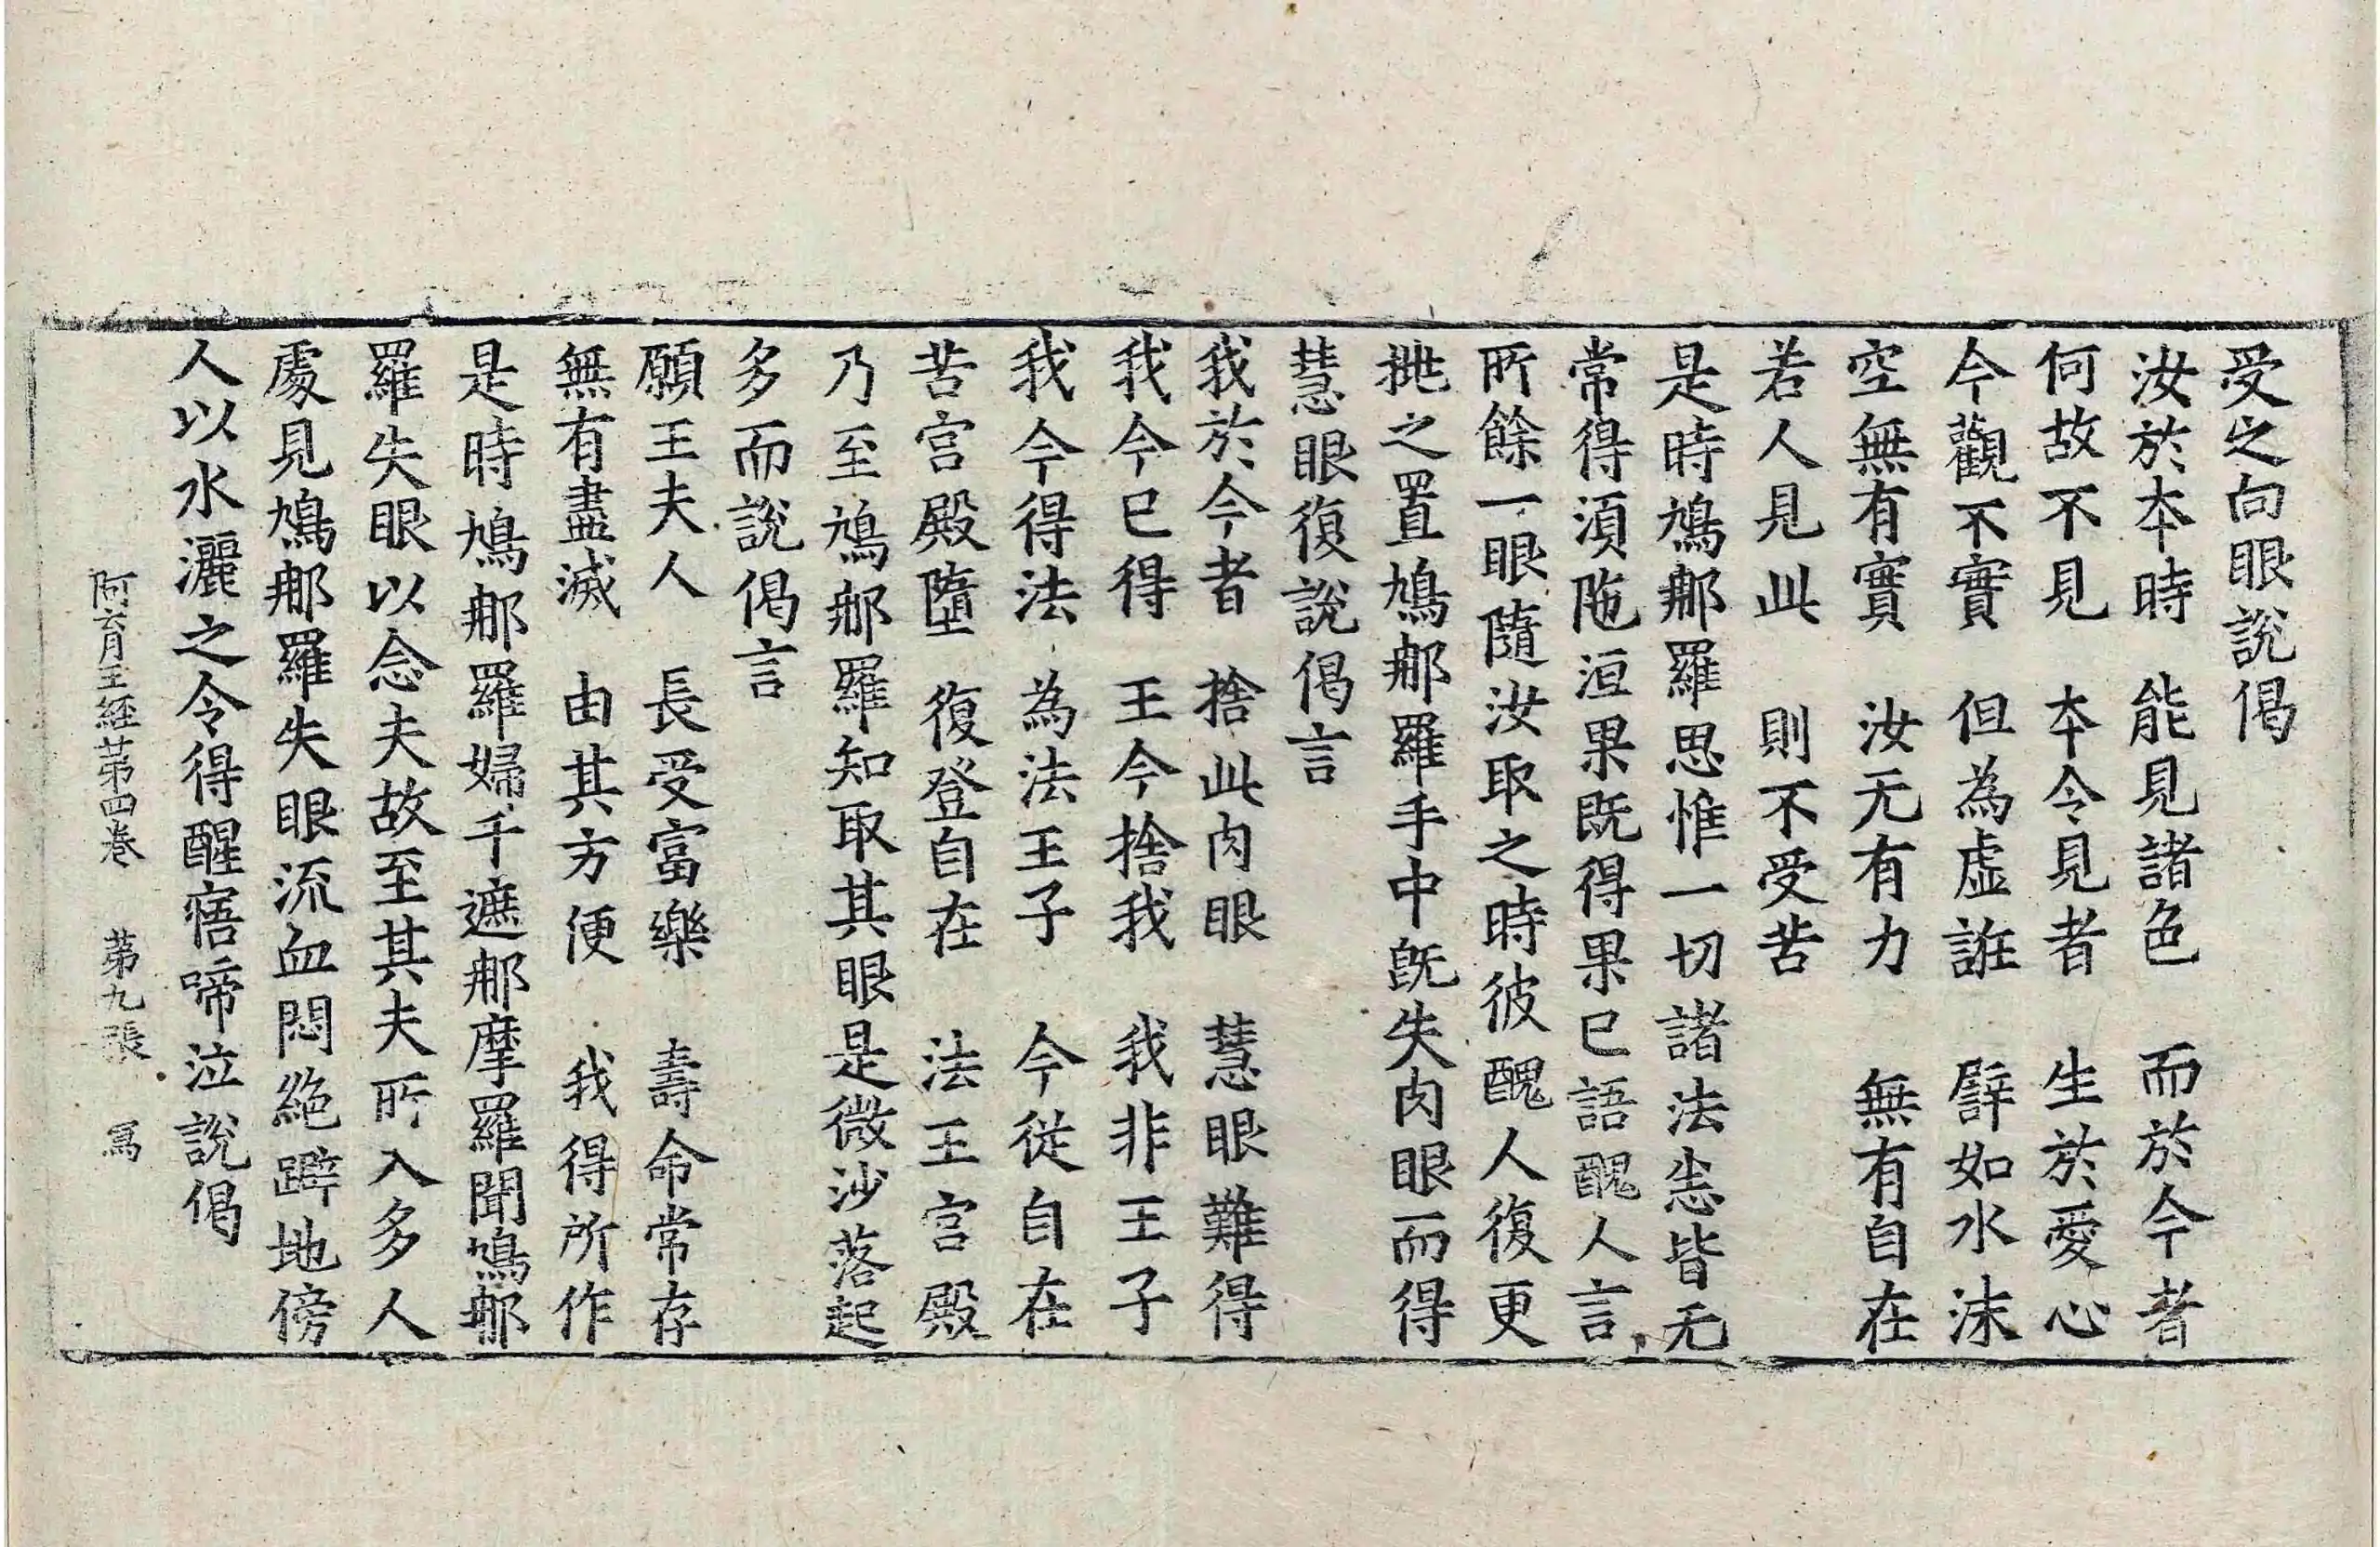 受之向眼說偈
汝於本時　能見諸色　而於今者
何故不見　本令見者　生於愛心
今觀不實　但為虛誑　譬如水沫
空無有實　汝无有力　無有自在
若人見此　則不受苦
是時鳩那羅思惟一切諸法悉皆无
常得須陁洹果既得果已語醜人言
所餘一眼隨汝取之時彼醜人復更
挑之置鳩那羅手中旣失肉眼而得
慧眼復說偈言
我於今者　捨此肉眼　慧眼難得
我今已得　王今捨我　我非王子
我今得法　為法王子　今從自在
苦宮殿墮　復登自在　法王宮殿
乃至鳩那羅知取其眼是微沙落起
多而說偈言
願王夫人　長受富樂　壽命常存
無有盡滅　由其方便　我得所作
是時鳩那羅婦千遮那摩羅聞鳩那
羅失眼以念夫故至其夫所入多人
處見鳩那羅失眼流血悶絕躃地傍
人以水灑之令得醒寤啼泣說偈
阿育王經苐四卷　苐九張　寫